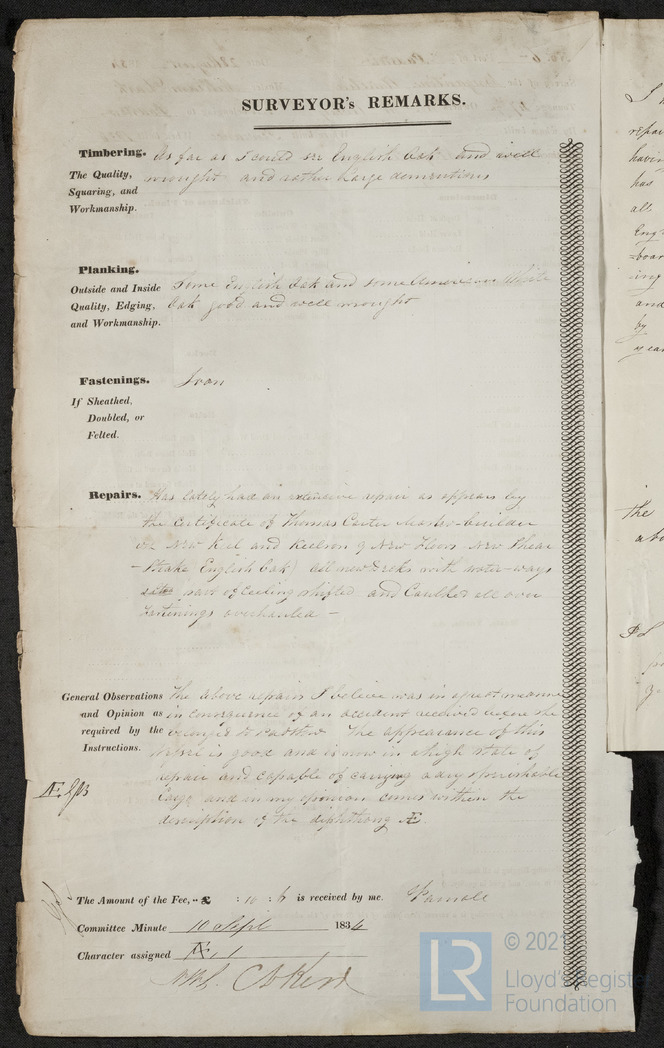 SURVEYOR's REMARKS.
Timbering. As far as I could see English Oak and well
The Quality, wrought and rather large dementions
Squaring, and
Workmanship.
Planking. Some English Oak and some American White
Outside and Inside Oak good and well wrought
Quality, Edging,
and Workmanship.
Fastenings. Iron
If Sheathed,
Doubled, or
Felted.
Repairs. Has lately had an extensive repair as appears by
the certificate of Thomas Carter Master-builder
New Keel and Keelson 9 New Floors New Shear
-Strake English Oak) all new Decks with water-ways
part of Ceiling shifted and Caulked all over
Fastenings overhauled -
General Observations The above repairs I believe was in a great measure
and Opinion as in consequence of an accident received before she
required by the belonged to Padstow The appearance of this
Instructions. is good and is now in a high state of
repair and capable of carrying a dry & perishable
Cargo and in my opinion comes within the
description of the diphthong Æ.
The Amount of the Fee, £ : 10 : 6 is received by me.
Committee Minute 10 Sept 1834
Character assigned Æ. 1
I
repai
havin
has
all
Eng-
-boar
ing
and
by
year
the
abo
LR
© 202
Lloyd's Registe
Foundation